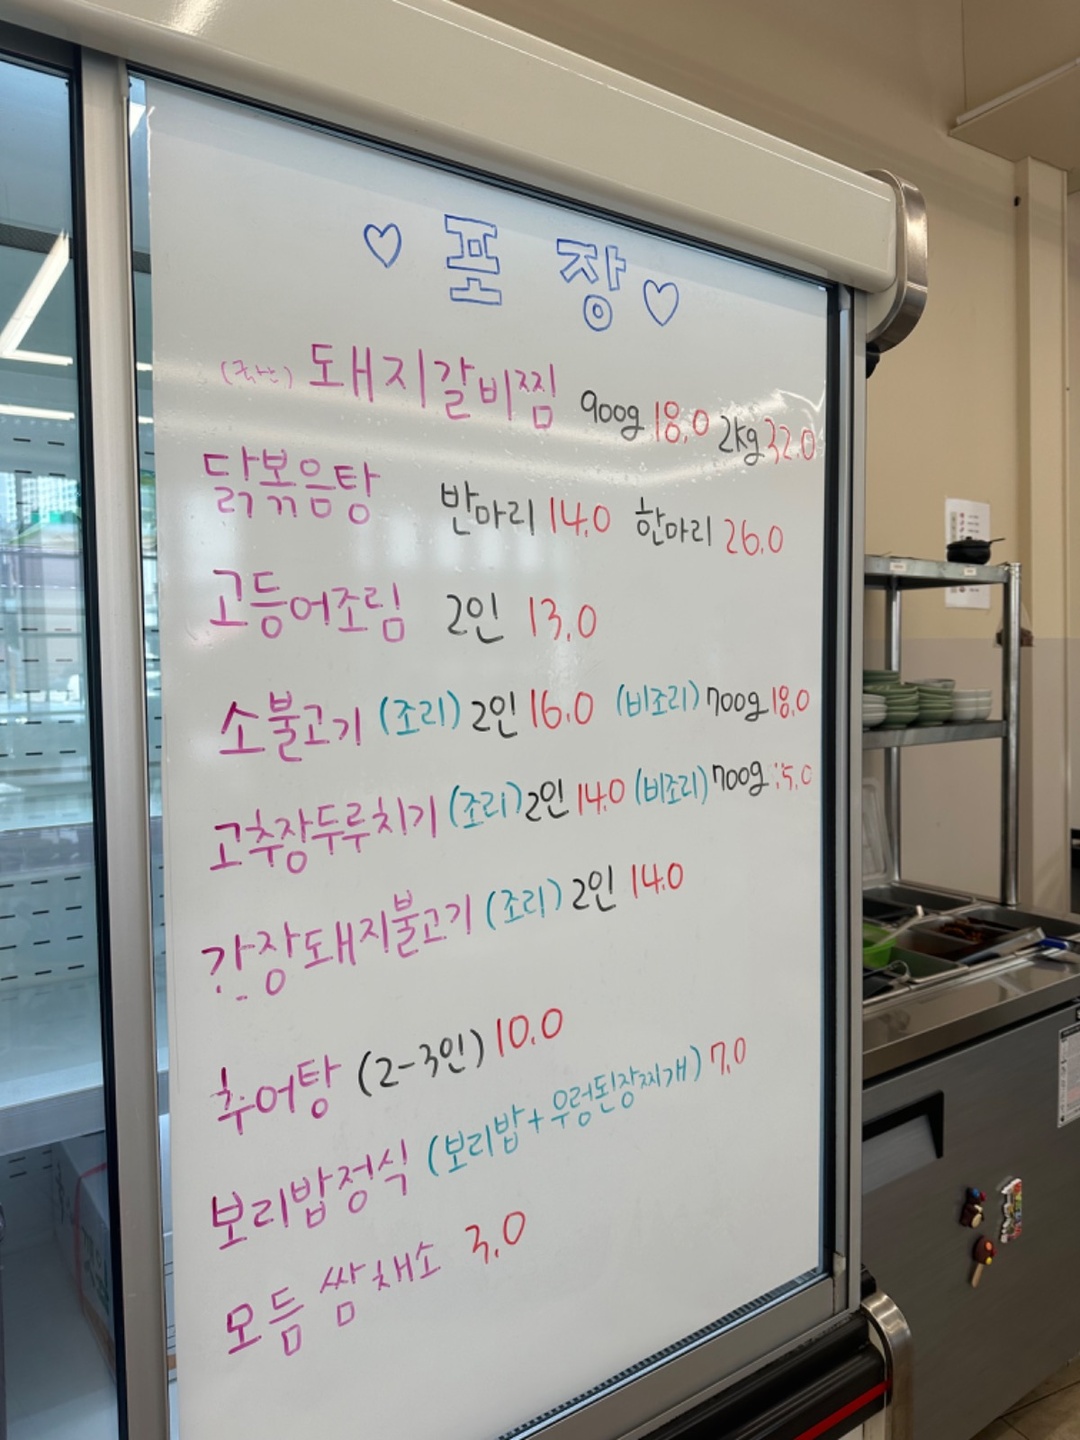 ♡ 포 장 ♡
(국산) 돼지갈비찜 900g 18.0 2kg 32.0
닭볶음탕 반마리 14.0 한마리 26.0
고등어조림 2인 13.0
소불고기 (조리) 2인 16.0 (비조리) 700g 18.0
고추장두루치기 (조리) 2인 14.0 (비조리) 700g 15.0
간장돼지불고기 (조리) 2인 14.0
추어탕 (2-3인) 10.0
보리밥정식 (보리밥+우렁된장찌개) 7.0
모듬 쌈채소 3.0